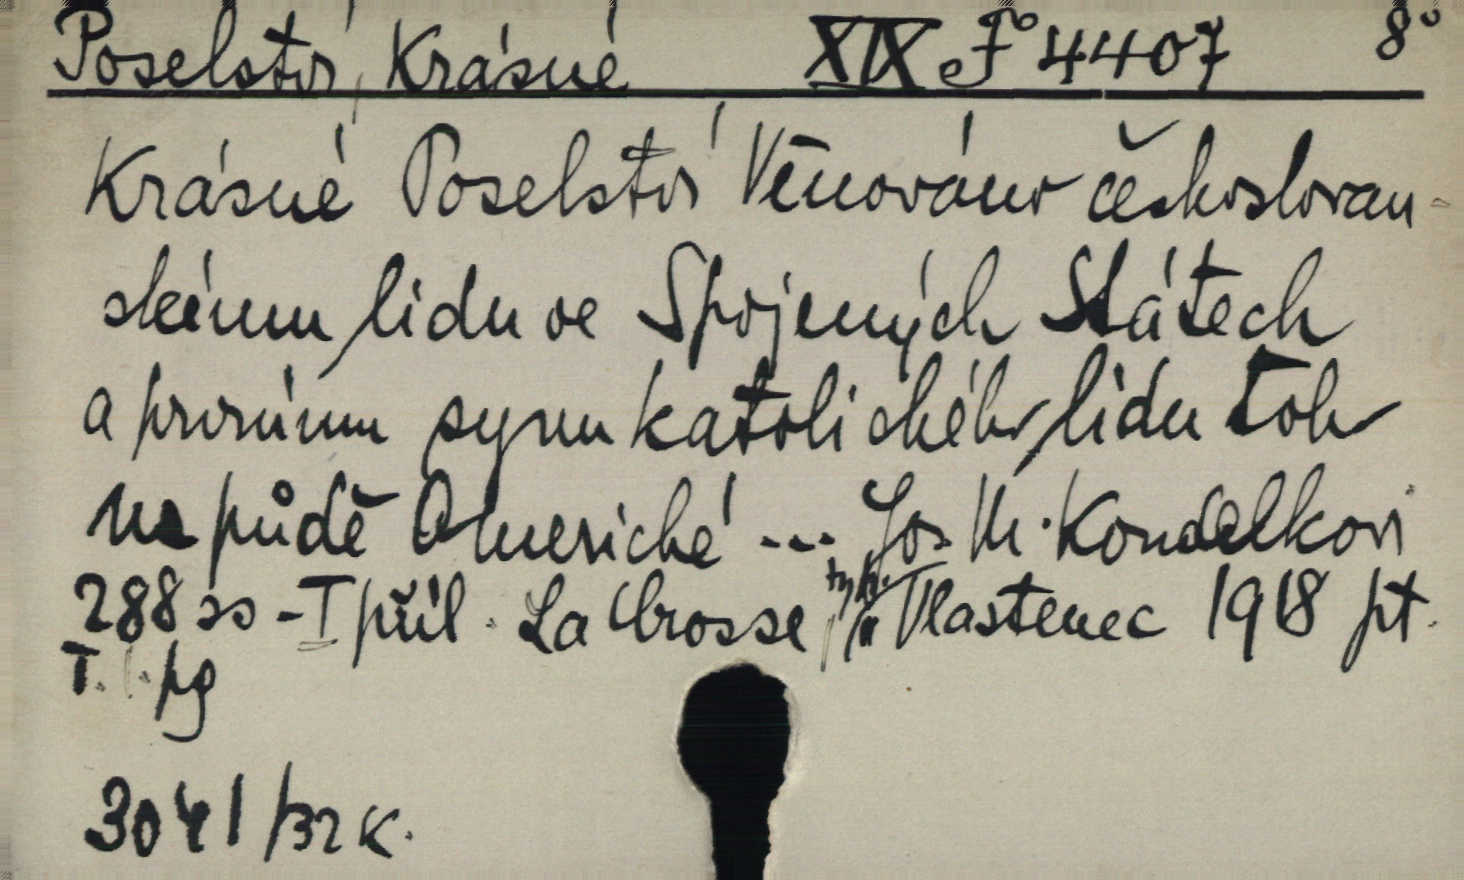 Poselství, Krásné XIX F° 4407 8°
Krásné Poselství Věnováno českoslovan-
skému lidu ve Spojených Státech
a prvnímu synu katolického lidu toho
na půdě Americké ... Jos. M. Koudelkovi
288 ss - I příl. La Crosse, typ. Vlastenec 1918 pt.
T. pg
3041/32 K.